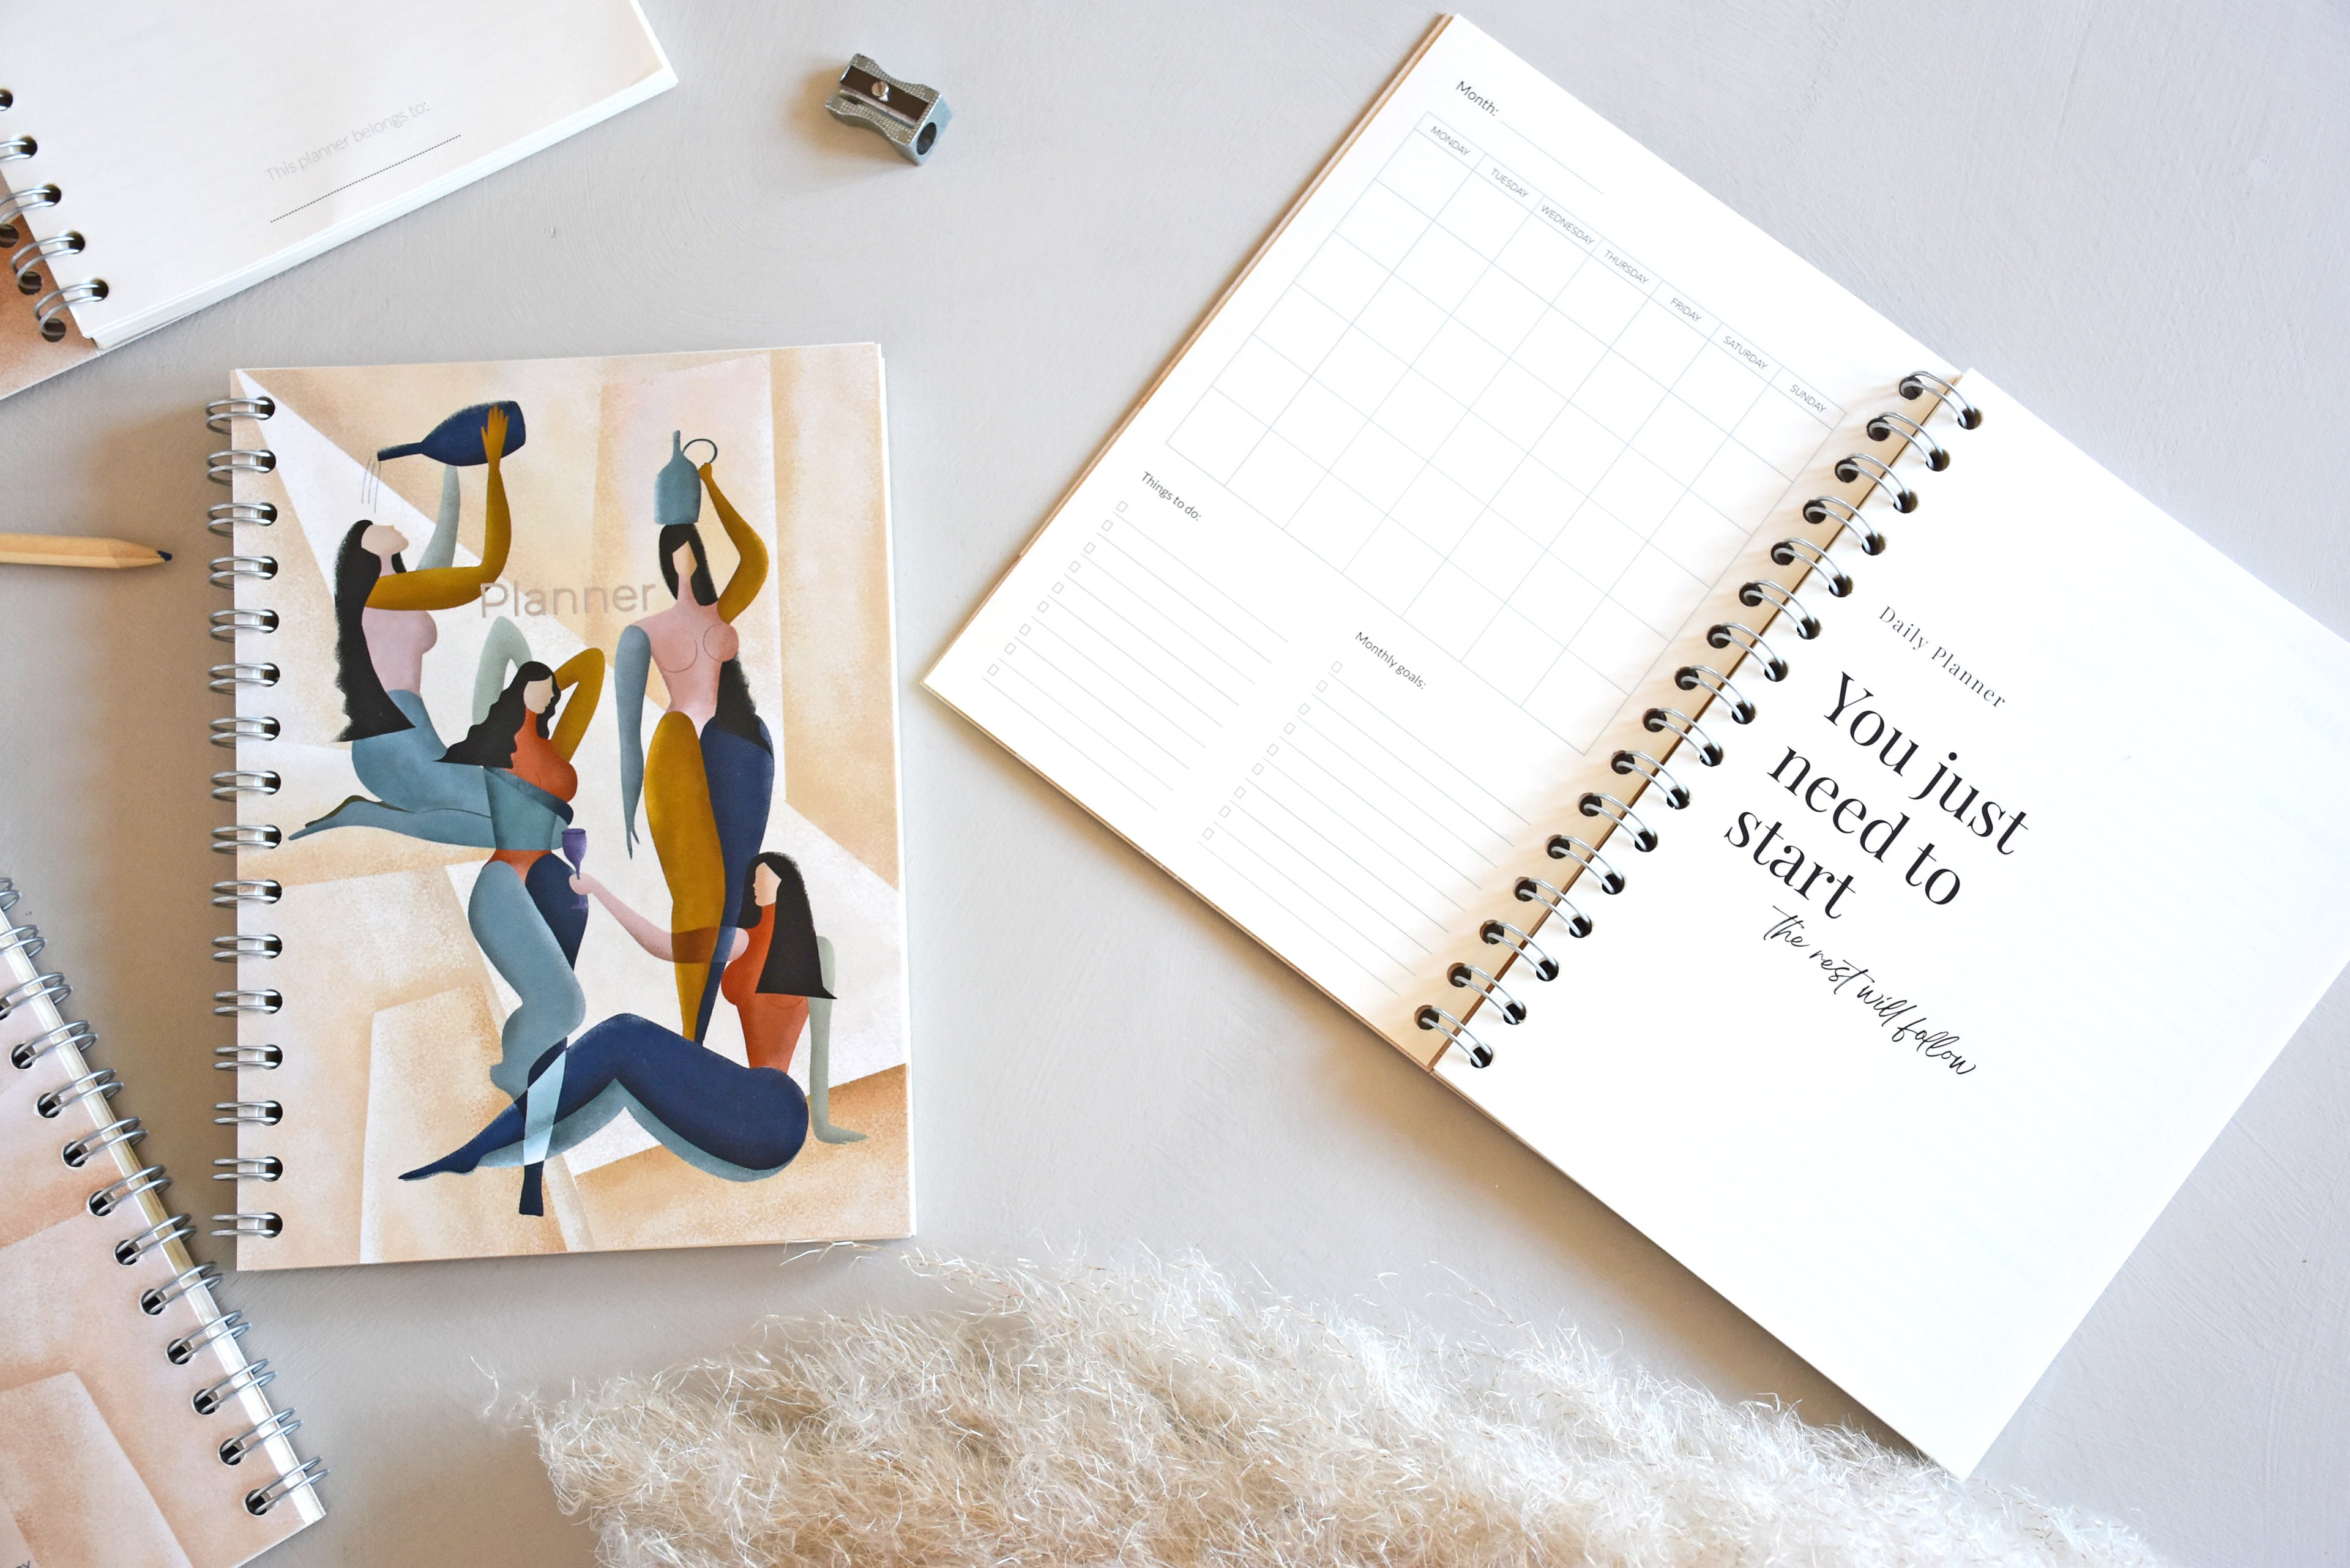 This planner belongs to:
Planner
Month:
MONDAY TUESDAY WEDNESDAY THURSDAY FRIDAY SATURDAY SUNDAY
Things to do:
Monthly goals:
Daily Planner
You just
need to
start
the rest will follow